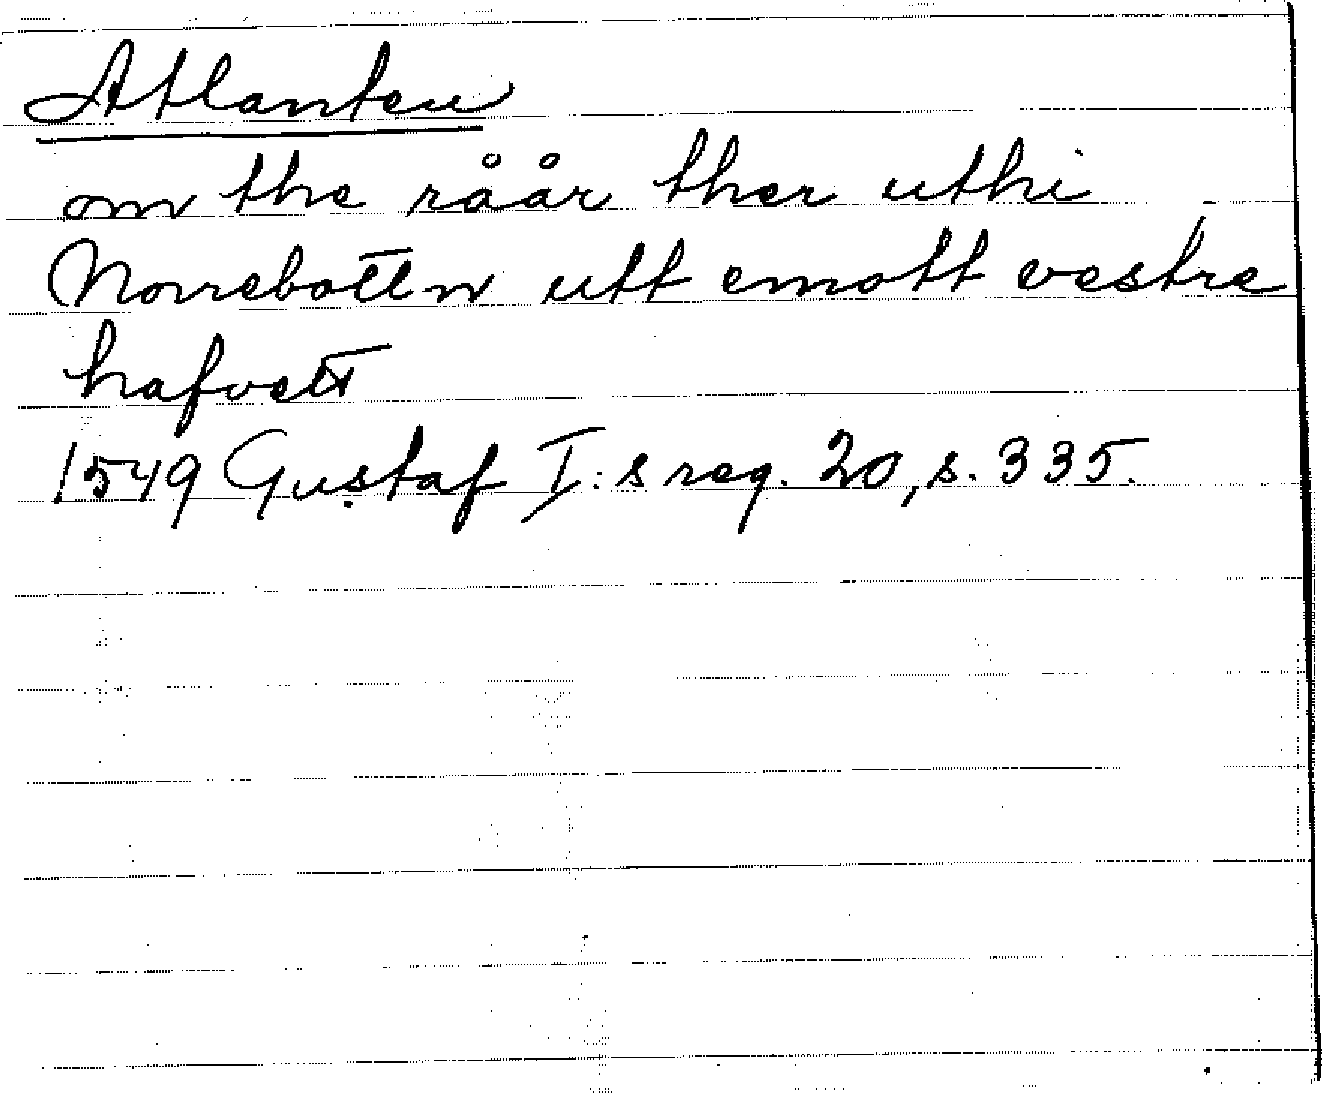 Atlanten
om the råår ther uthi
Norrebottn utt emott vestre
hafvett
1549 Gustaf I:s reg. 20, s. 335.